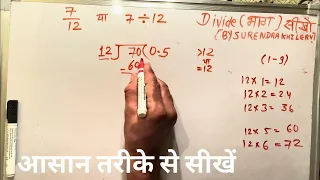 7/12 या 7 ÷ 12
Divide (भाग) सीखो
(BY) SURENDRA KHILERY)
12 ) 70 ( 0.5
60
>12
या
=12
(1-9)
12 × 1 = 12
12 × 2 = 24
12 × 3 = 36
12 × 5 = 60
12 × 6 = 72
आसान तरीके से सीखें